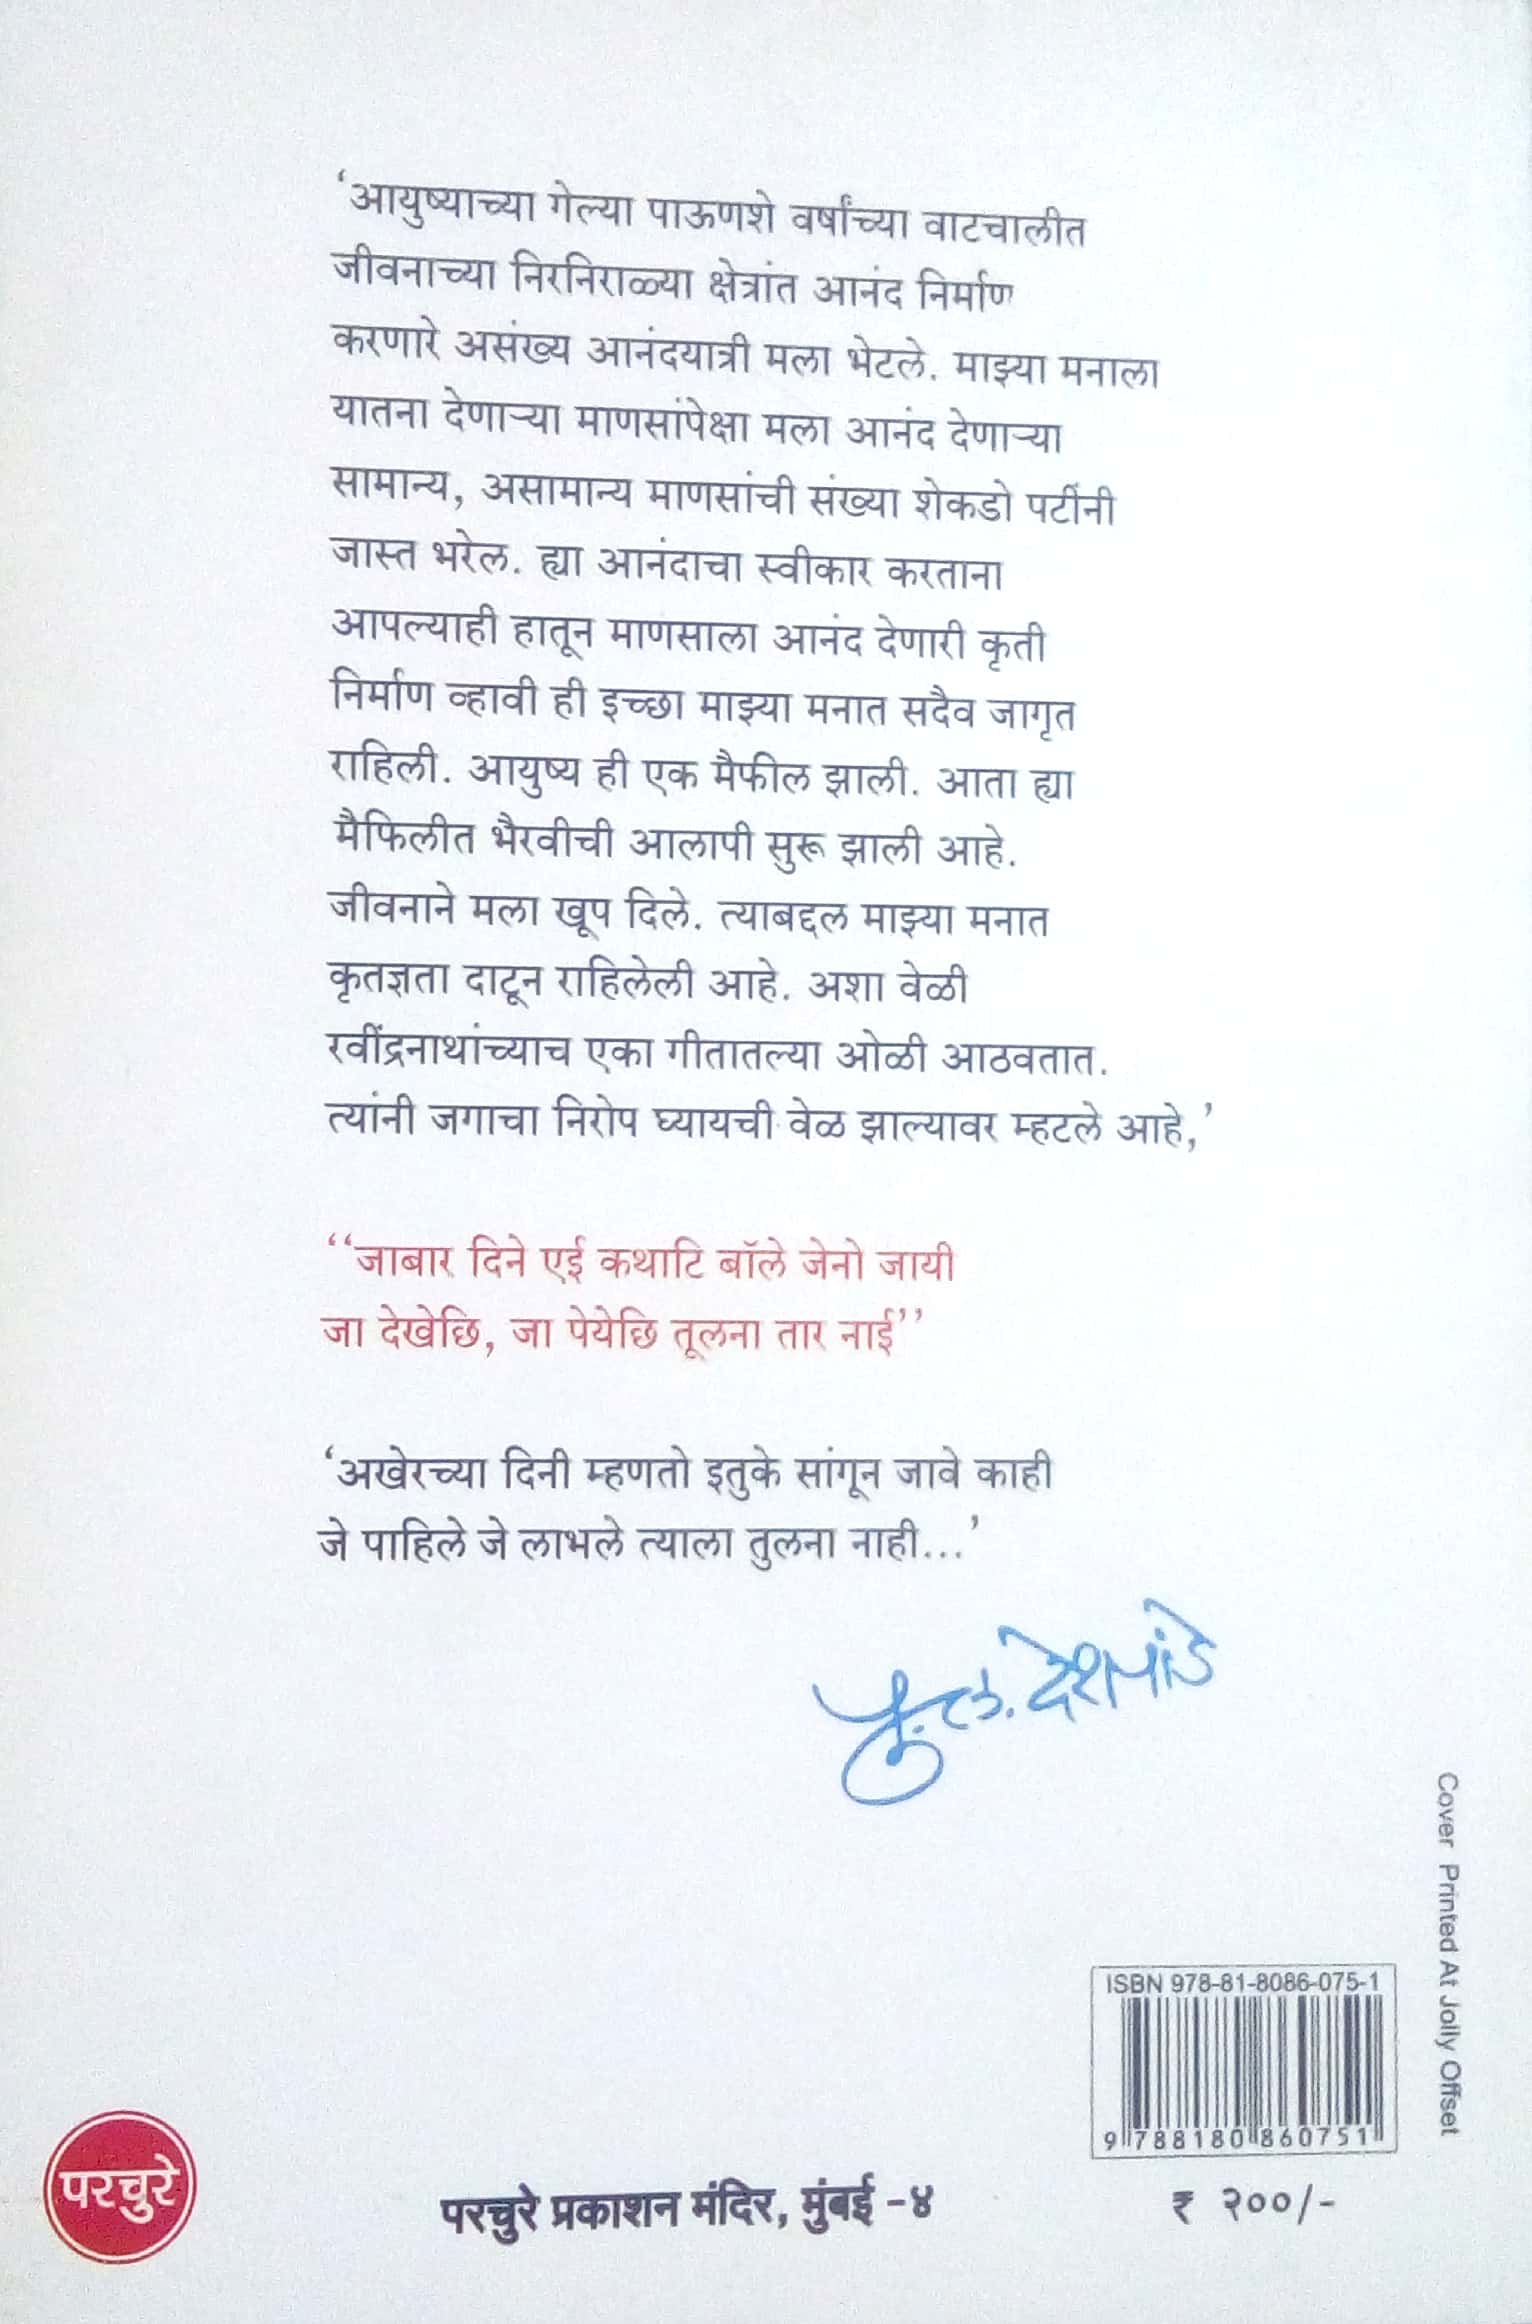 ‘आयुष्याच्या गेल्या पाऊणशे वर्षांच्या वाटचालीत
जीवनाच्या निरनिराळ्या क्षेत्रांत आनंद निर्माण
करणारे असंख्य आनंदयात्री मला भेटले. माझ्या मनाला
यातना देणाऱ्या माणसांपेक्षा मला आनंद देणाऱ्या
सामान्य, असामान्य माणसांची संख्या शेकडो पटींनी
जास्त भरेल. ह्या आनंदाचा स्वीकार करताना
आपल्याही हातून माणसाला आनंद देणारी कृती
निर्माण व्हावी ही इच्छा माझ्या मनात सदैव जागृत
राहिली. आयुष्य ही एक मैफील झाली. आता ह्या
मैफिलीत भैरवीची आलापी सुरू झाली आहे.
जीवनाने मला खूप दिले. त्याबद्दल माझ्या मनात
कृतज्ञता दाटून राहिलेली आहे. अशा वेळी
रवींद्रनाथांच्याच एका गीतातल्या ओळी आठवतात.
त्यांनी जगाचा निरोप घ्यायची वेळ झाल्यावर म्हटले आहे,’
‘‘जाबार दिने एई कथाटि बॉले जेनो जायी
जा देखेछि, जा पेयेछि तूलना तार नाई’’
‘अखेरच्या दिनी म्हणतो इतुके सांगून जावे काही
जे पाहिले जे लाभले त्याला तुलना नाही...’
पु. ल. देशपांडे
Cover Printed At Jolly Offset
ISBN 978-81-8086-075-1
9 788180 860751
परचुरे
परचुरे प्रकाशन मंदिर, मुंबई -४
₹ २००/-